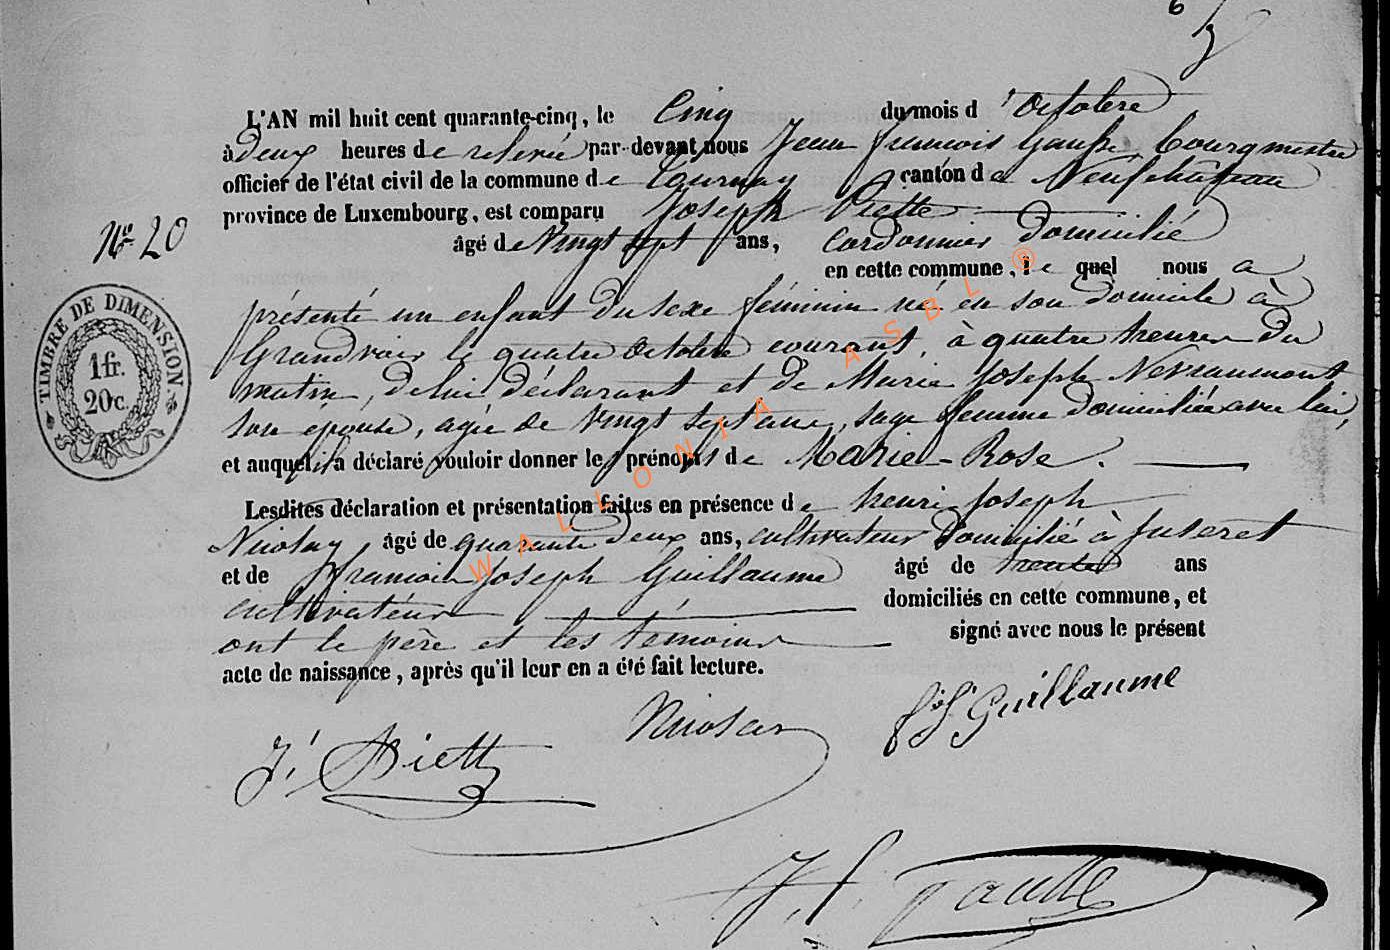 6
L'AN mil huit cent quarante-cinq, le Cinq du mois d'Octobre
à deux heures de relevée par-devant nous Jean françois Gauffe bourgmestre
officier de l'état civil de la commune de Tournay canton de Neufchâteau
province de Luxembourg, est comparu Joseph Piette
N° 20
âgé de Vingt sept ans, cordonnier domicilié
en cette commune, le quel nous a
TIMBRE DE DIMENSION
1 fr.
20 c.
présenté un enfant du sexe féminin né en son domicile à
Grandvoir le quatre Octobre courant, à quatre heures du
matin, de lui déclarant et de Marie Joseph
son épouse, agée de Vingt sept ans, sage femme domiciliée avec lui,
et auquel il a déclaré vouloir donner les prénoms de Marie-Rose.
Lesdites déclaration et présentation faites en présence de henri Joseph
Nicolay, âgé de quarante deux ans, cultivateur domicilié à Juseret
et de françois Joseph Guillaume âgé de trente ans
cultivateur domiciliés en cette commune, et
ont le père et les témoins signé avec nous le présent
acte de naissance, après qu'il leur en a été fait lecture.
J. Piette
Nicolay
f. J. Guillaume
J. f. Gauffe
WALLONIA ASBL ®